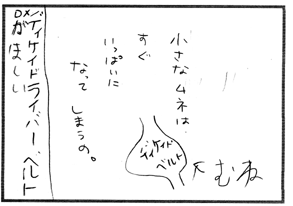 小さなムネは
すぐ
いっぱいに
なって
しまうの。
ディケイド
ベルト
←むね
DXディケイドライバー、ベルト
がほしい